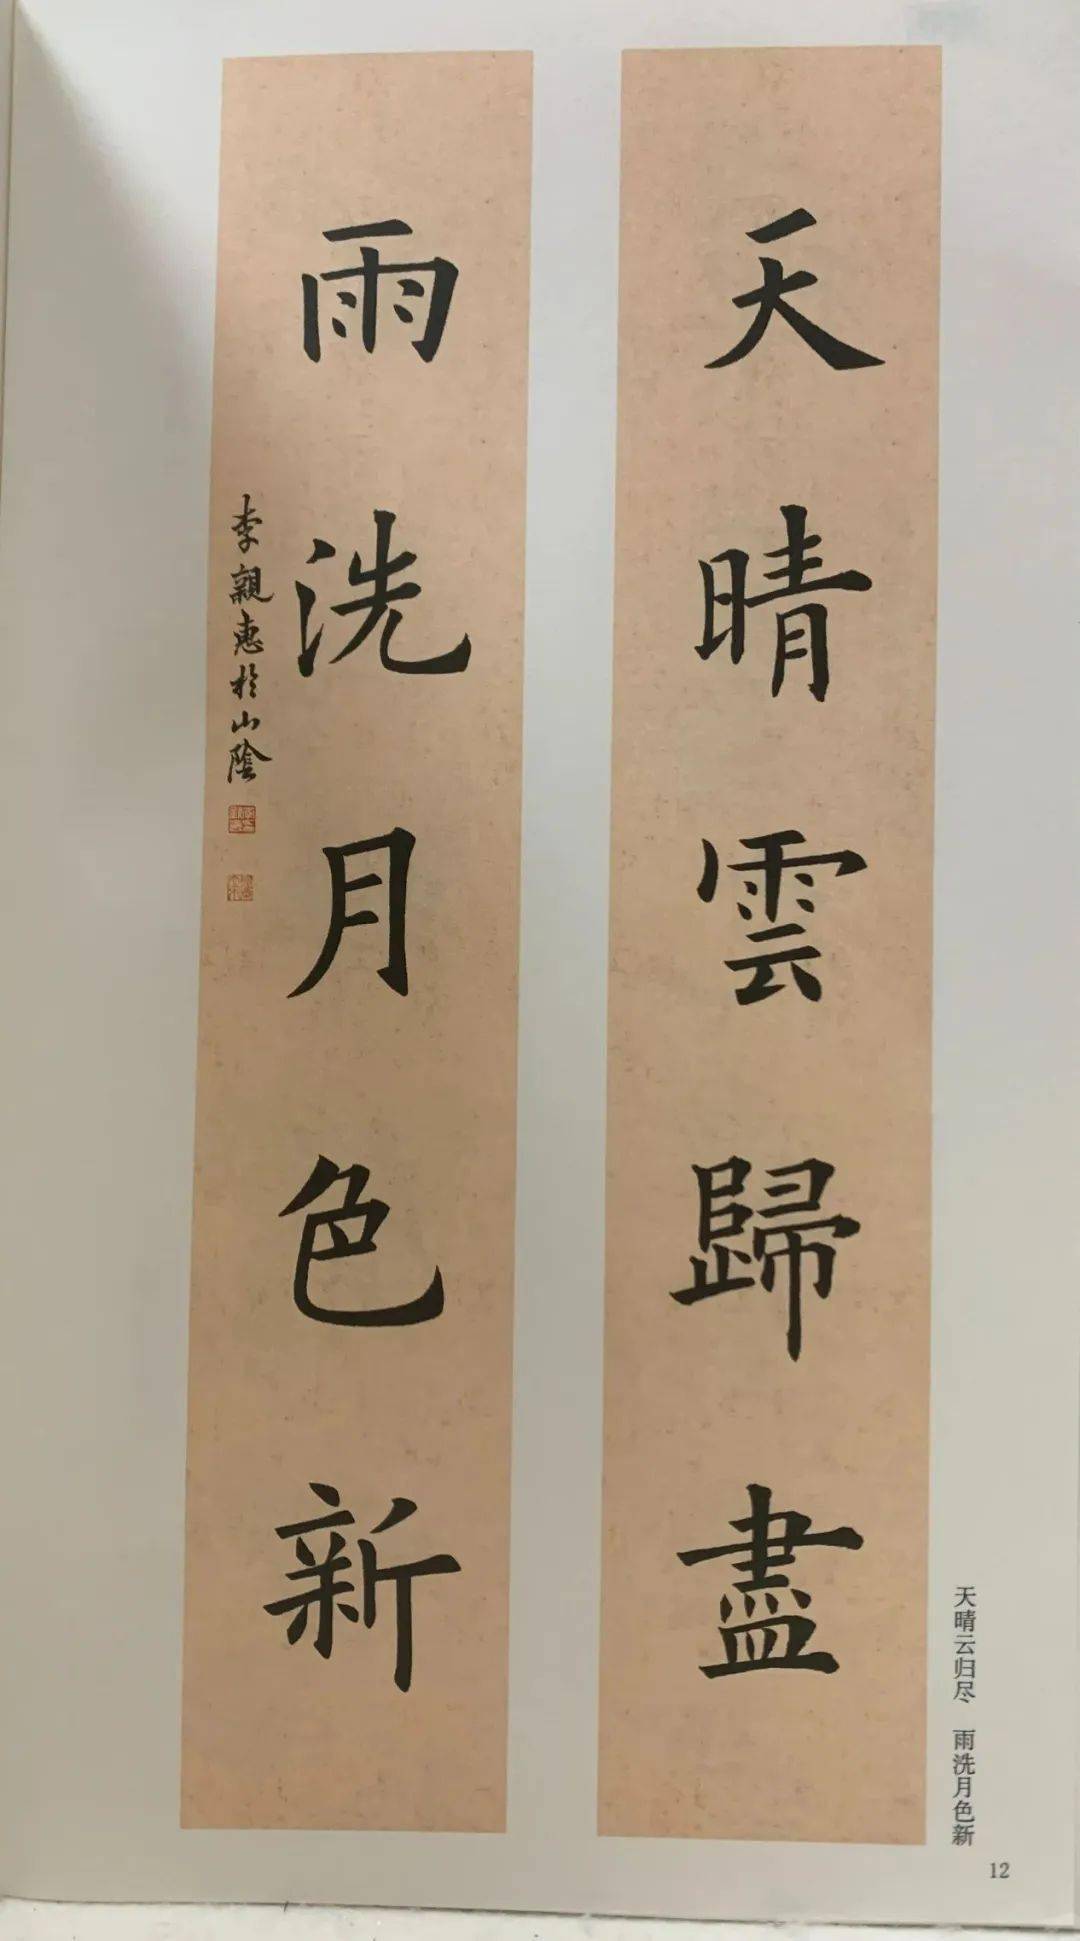 天晴雲歸盡
雨洗月色新
李親惠於山陰
天晴云归尽 雨洗月色新
12